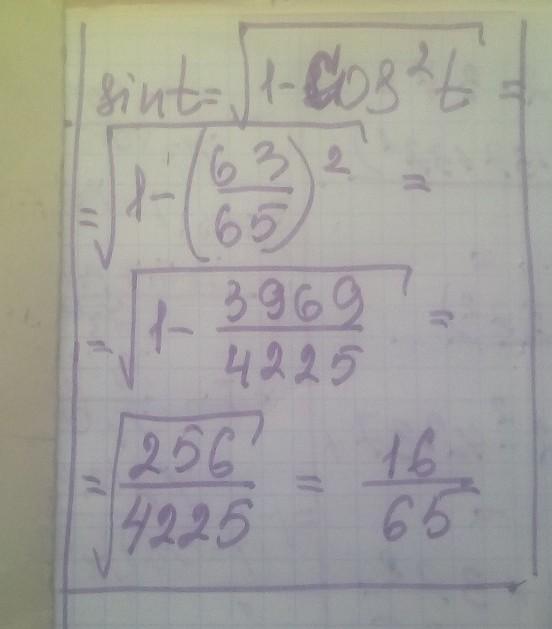 sin t = √(1 - cos² t) =
= √(1 - (63/65)²) =
= √(1 - 3969/4225) =
= √(256/4225) = 16/65